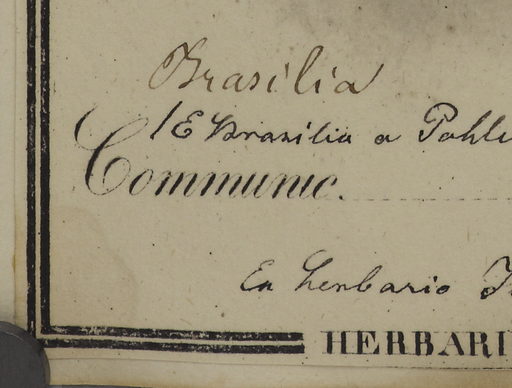 Brasilia
(E Brasilia a Pohl
Communic.
Ex herbario
HERBARI